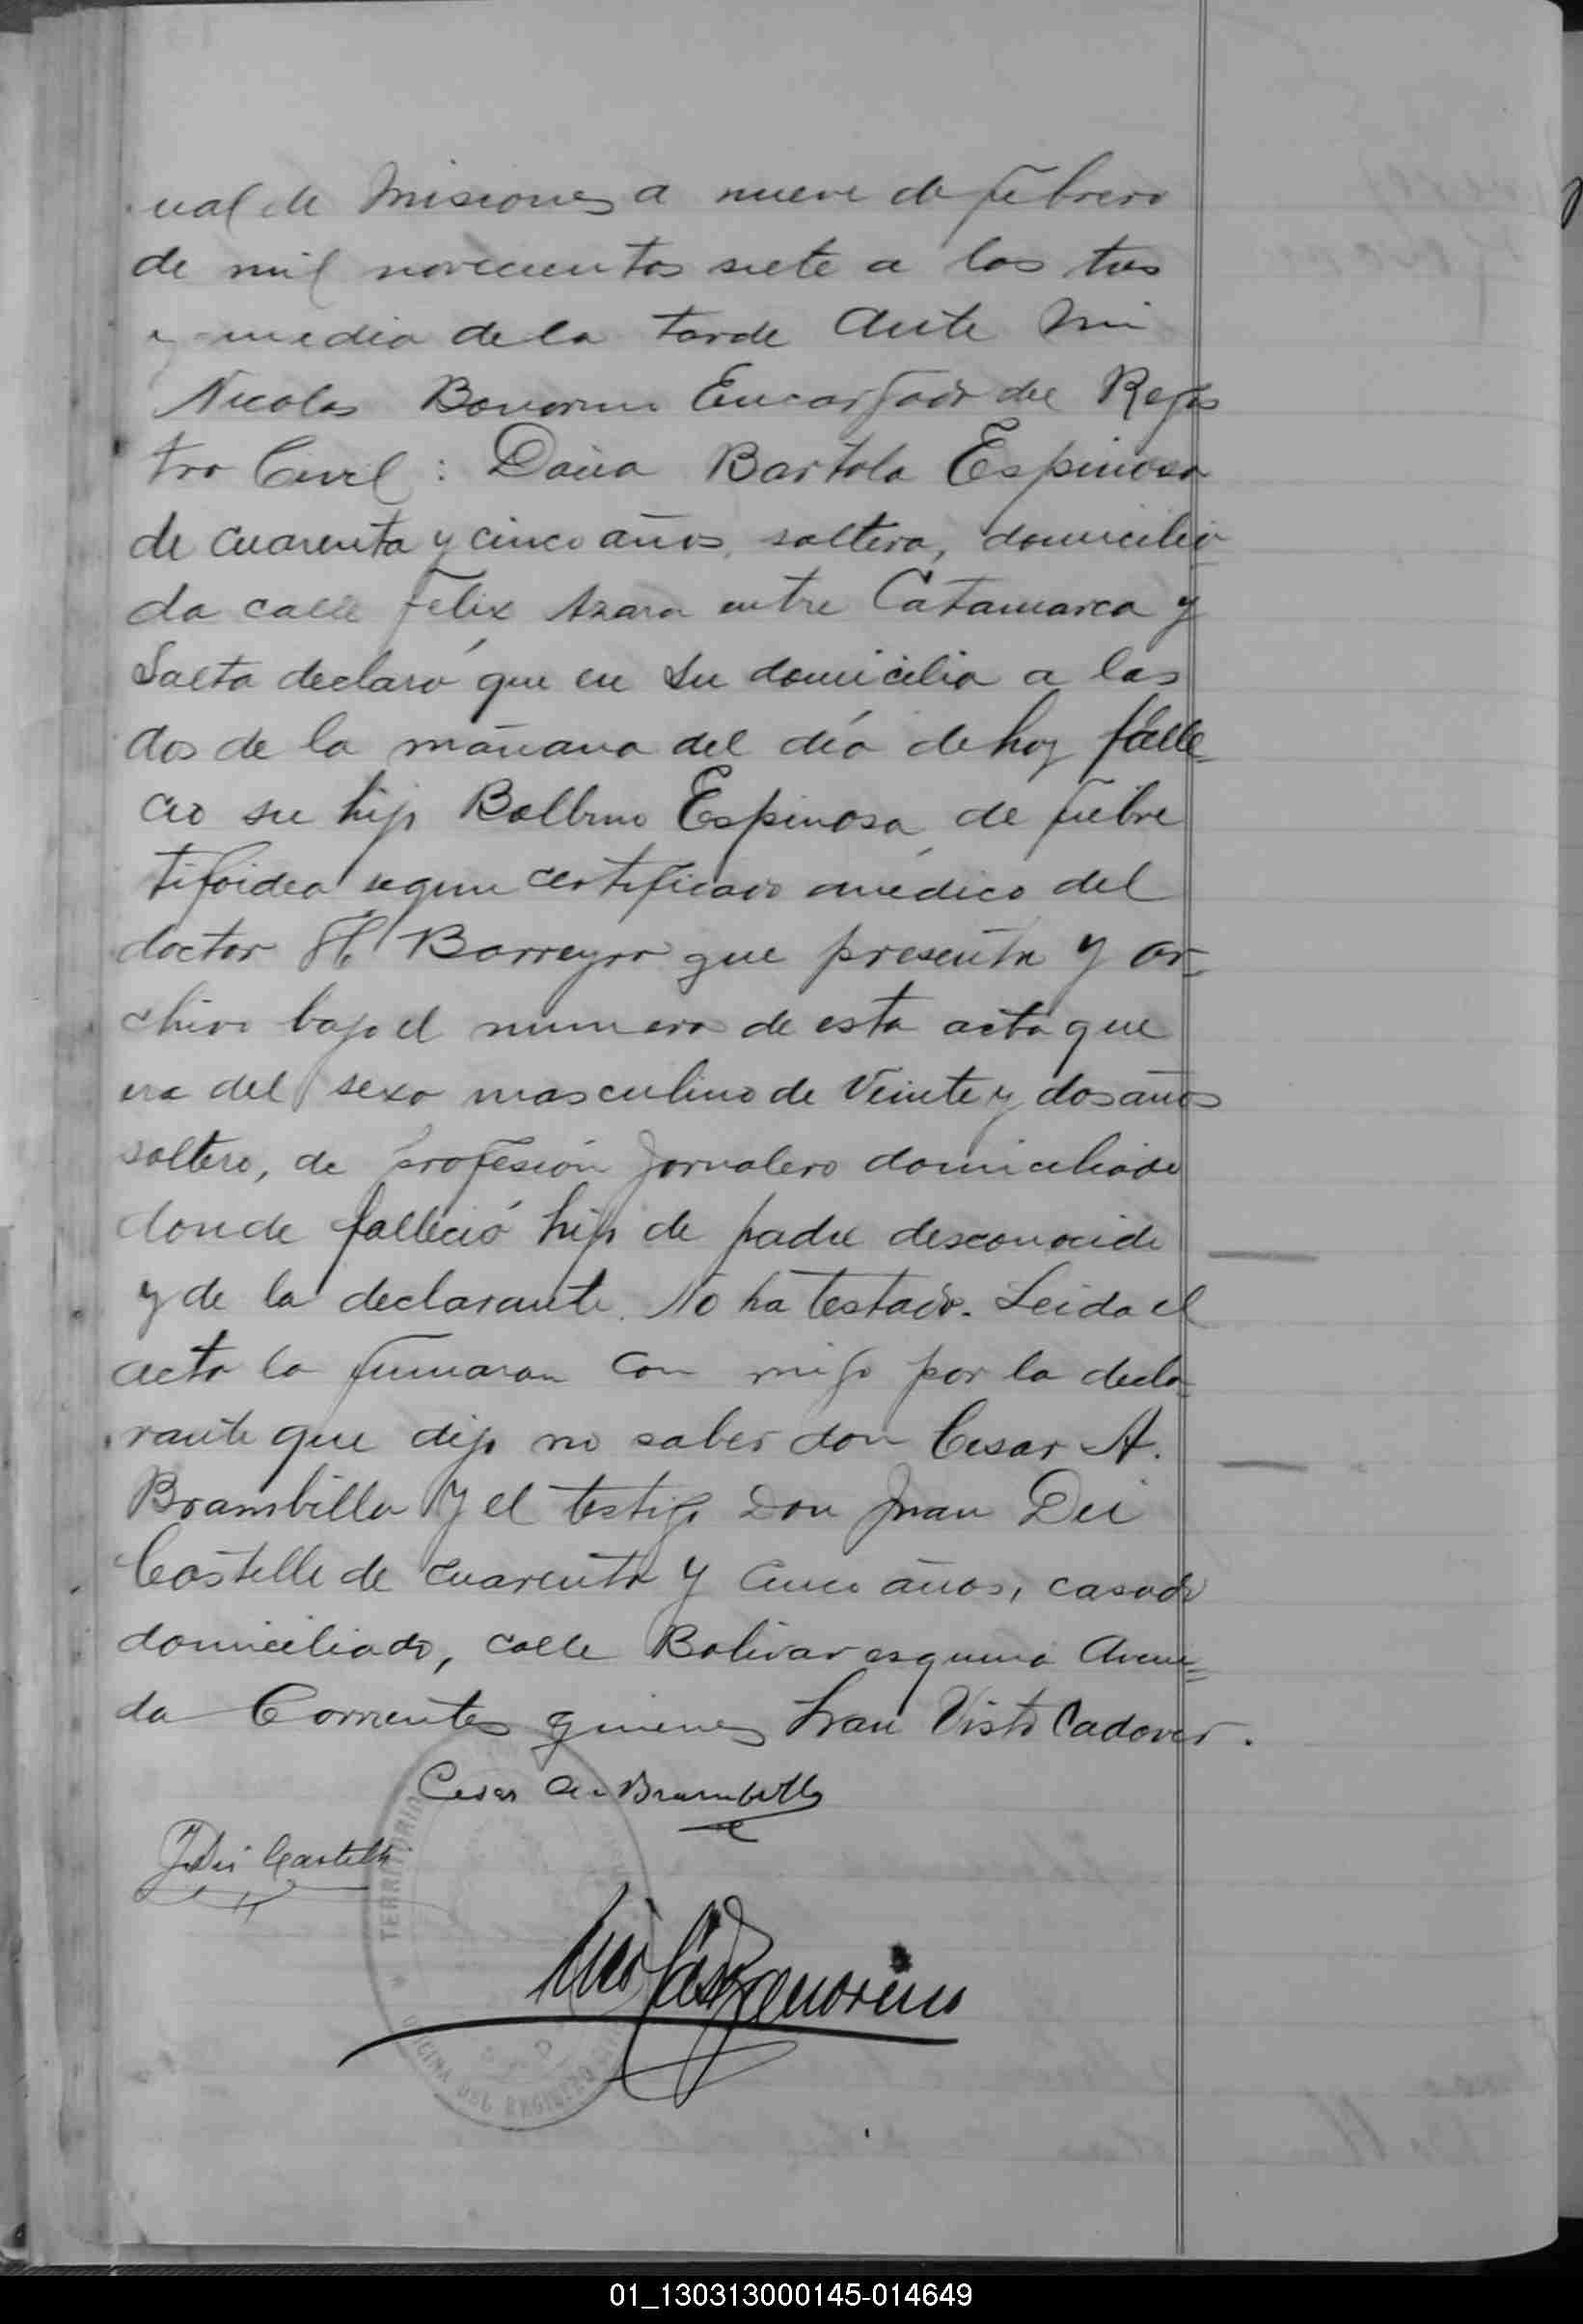 nal de Misiones a nueve de febrero
de mil novecientos siete a las tres
y media de la tarde Ante mi
Nicolas Bonorino Encargado del Regis
tro Civil: Doña Bartola Espinosa
de cuarenta y cinco años, soltera, domicilia
da calle Felix Azara entre Catamarca y
Salta declaró que en su domicilio a las
dos de la mañana del día de hoy falle-
cio su hijo Balbino Espinosa, de fiebre
tifoidea segun certificado médico del
doctor H Barreyro que presenta y ar-
chivo bajo el numero de esta acta que
era del sexo masculino de Veinte y dos años
soltero, de profesión Jornalero domiciliado
donde falleció hijo de padre desconocido
y de la declarante. No ha testado. Leida el
acta la firmaran con migo por la decla-
rante que dijo no saber don Cesar A.
Brambilla y el testigo Don Juan Dei
Castelle de cuarenta y cinco años, casado
domiciliado, calle Bolivar esquina Aveni=
da Corrientes quienes han Visto Cadaver.
Cesar A. Brambilla
J Dei Castelli
Nicolás Bonorino
TERRITORIO
OFICINA DEL REGISTRO
01_130313000145-014649